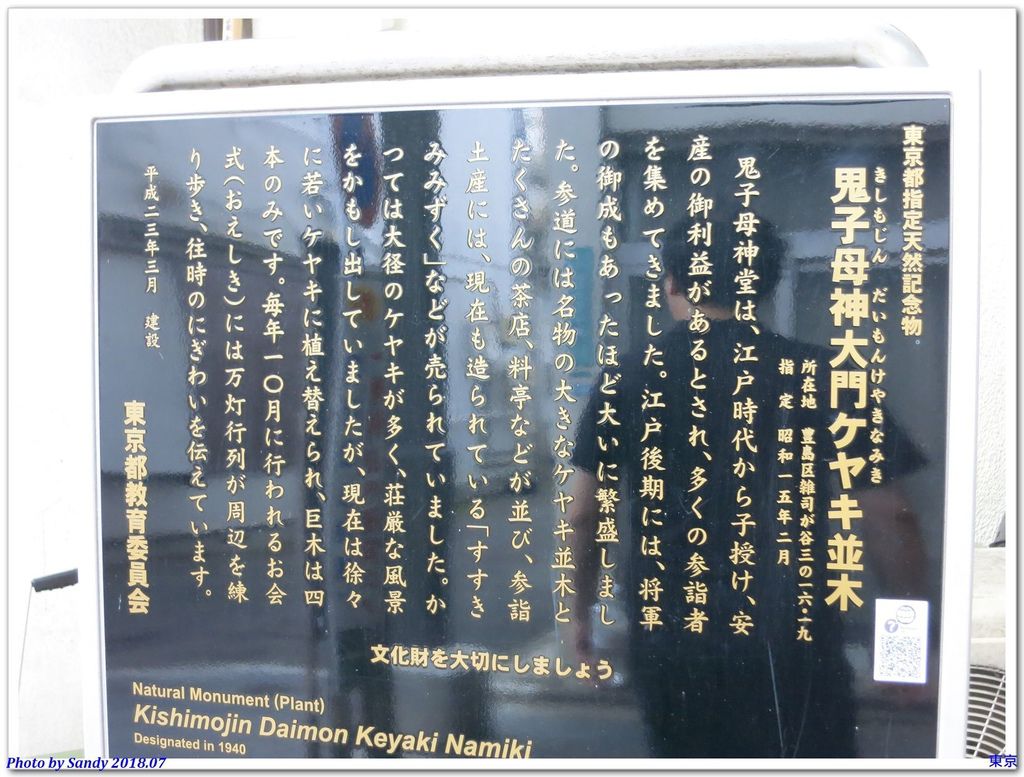 東京都指定天然記念物。
きしもじん だいもんけやきなみき
鬼子母神大門ケヤキ並木
所在地 豊島区雑司が谷三の一六・一九
指定 昭和一五年二月
鬼子母神堂は、江戸時代から子授け、安
産の御利益があるとされ、多くの参詣者
を集めてきました。江戸後期には、将軍
の御成もあったほど大いに繁盛しまし
た。参道には名物の大きなケヤキ並木と
たくさんの茶店、料亭などが並び、参詣
土産には、現在も造られている「すすき
みみずく」などが売られていました。か
つては大径のケヤキが多く、荘厳な風景
をかもし出していましたが、現在は徐々
に若いケヤキに植え替えられ、巨木は四
本のみです。毎年一〇月に行われるお会
式(おえしき)には万灯行列が周辺を練
り歩き、往時のにぎわいを伝えています。
平成二三年三月 建設
東京都教育委員会
文化財を大切にしましょう
Natural Monument (Plant)
Kishimojin Daimon Keyaki Namiki
Designated in 1940
Photo by Sandy 2018.07
東京